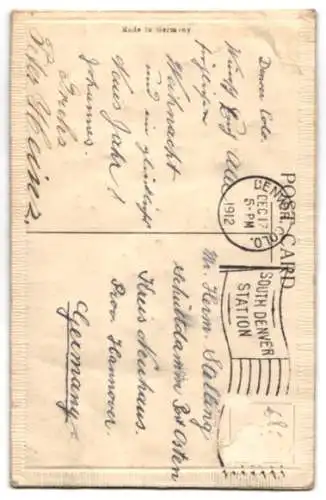 Made in Germany
POST CARD
Denver Colo.
Wünsch Euch Allen
fröhlichen
Weihnacht
und ein glückliches
Neues Jahr!
Johannes
Fuchs
DENVER COLO.
DEC 17
5-PM
1912
SOUTH DENVER
STATION
Mr. Herm. Stelling
Post Osten
Kreis Neuhaus.
Prov Hannover.
Germany